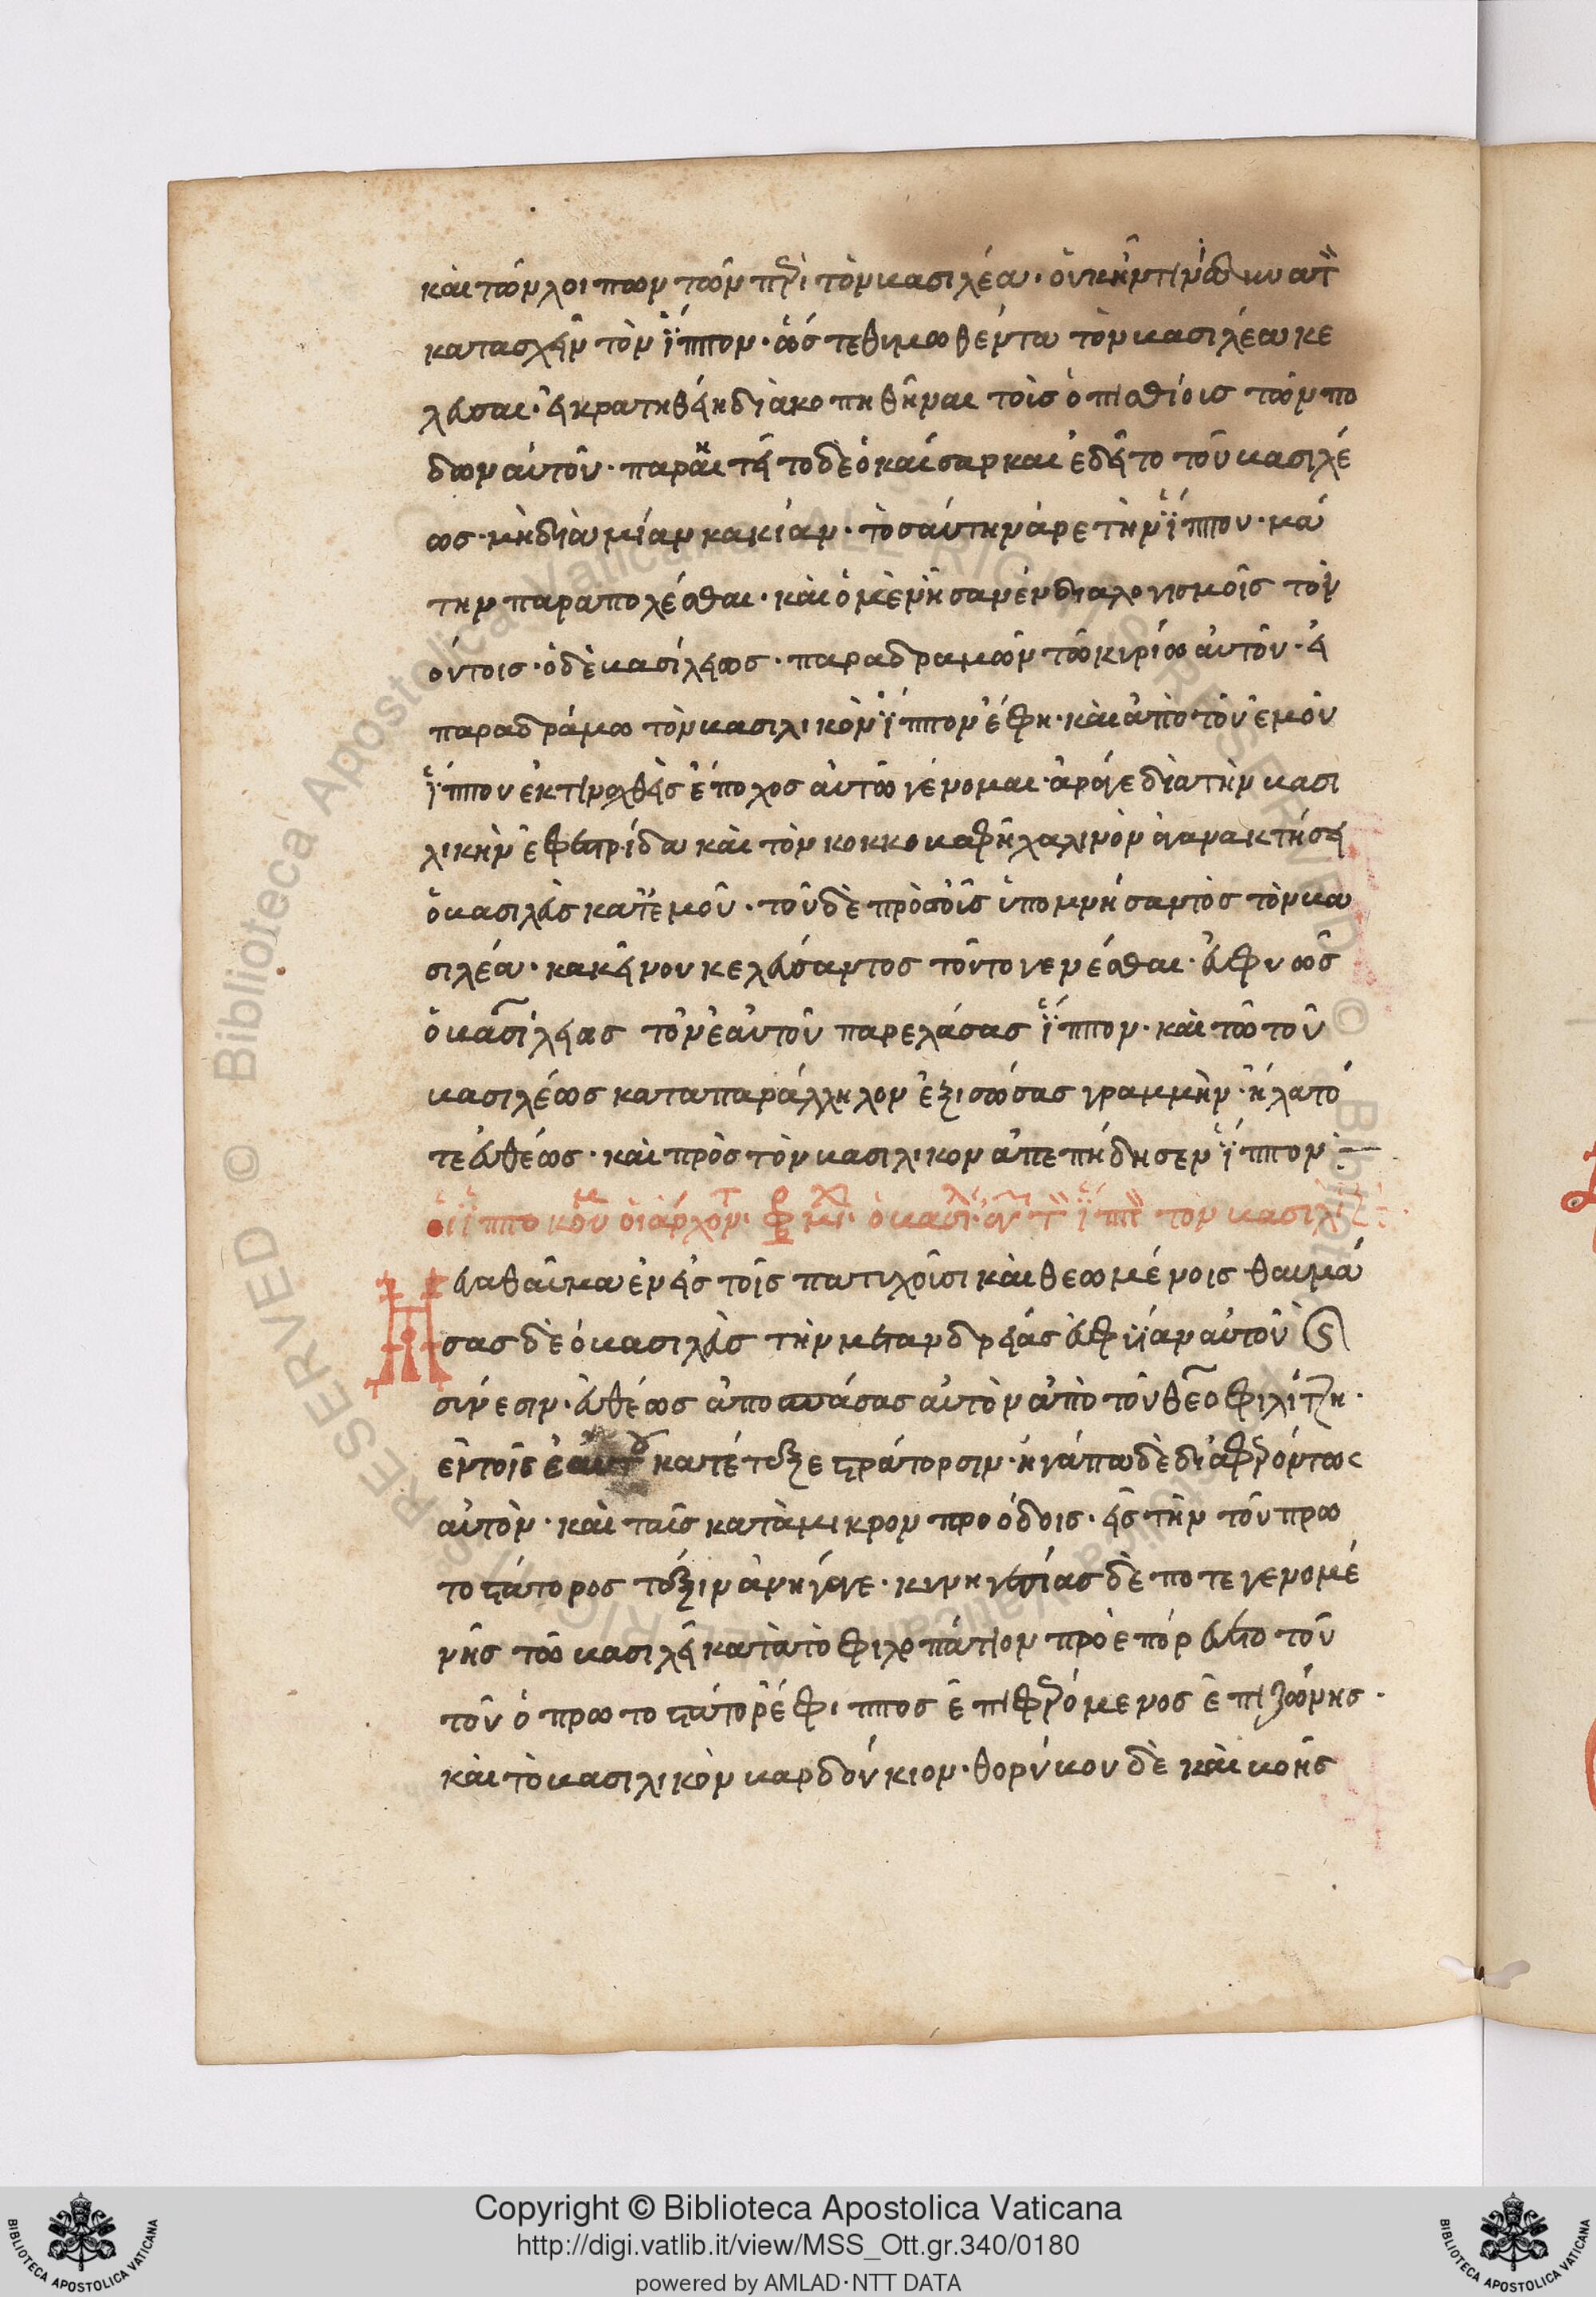 καὶ τῶν λοιπῶν τῶν περὶ τὸν βασιλέα· οὐκ ἦν τὶ δυνατὸν
κατασχεῖν τὸν ἵππον· ὥς τε θυμωθέντα τὸν βασιλέα κε
λεῦσαι· εἰ κρατηθείη διακοπηθῆναι τοῖς ὀπισθίοις τῶν πο
δῶν αὐτοῦ· παρήκειτο δὲ ὁ καίσαρ καὶ ἐδεῖτο τοῦ βασιλέ
ως· μὴ διὰ μίαν κακίαν· τοσαύτην ἀρετὴν ἵππου· μά
την παραπολέσθαι· καὶ ὁ μὲν ἦσαν ἐν διαλογισμοῖς τοι
ούτοις· ὁ δὲ βασίλειος· παραδραμὼν τῶ κυρίω αὐτοῦ· εἰ
παραδράμω τὸν βασιλικὸν ἵππον ἔφη· καὶ ἀπὸ τοῦ ἐμοῦ
ἵππου ἐκτιναχθεὶς ἔποχος αὐτῶ γένομαι· ἆρά γε διὰ τὴν βασι
λικὴν ἐφεστρίδα καὶ τὸν κοκκοβαφῆ χαλινὸν ἀγανακτήσει
ὁ βασιλεὺς κατ' ἐμοῦ· τοῦ δὲ πρὸς τοῖς ὑπομνήσαντος τὸν βα
σιλέα· κἀκείνου κελεύσαντος τοῦτο γενέσθαι· εὐφυῶς
ὁ βασίλειος τὸν ἑαυτοῦ παρελάσας ἵππον· καὶ τῶ τοῦ
βασιλέως κατὰ παράλληλον ἐξισώσας γραμμὴν· ἥλατό
τε εὐθέως· καὶ πρὸς τὸν βασιλικὸν ἀπεπήδησεν ἵππον:—
οἱ ἱπποκόμοι οἱ ἄρχοντ· μι· ὁ βασιλ· τ ἵππ τὸν βασιλ
Καὶ θαῦμα ἐν εἰς τοῖς πατυχοῦσι καὶ θεωμένοις θαυμά
σας δὲ ὁ βασιλεὺς τὴν μετ' ἀνδρείας εὐφυΐαν αὐτοῦ καὶ
σύνεσιν· εὐθέως ἀποσπάσας αὐτὸν ἀπὸ τοῦ θεοφιλίτζη·
ἐν τοῖς ἑαυτοῦ κατέταξε στράτορσιν· ἠγάπα δὲ διαφερόντως
αὐτὸν· καὶ ταῖς κατὰ μικρὸν προόδοις· εἰς τὴν τοῦ πρω
τοστάτορος τάξιν ἀνήγαγε· κυνηγεσίας δὲ ποτε γενομέ
νης τῶ βασιλεῖ κατὰ τὸ φιλοπάτιον προεπορεύετο τού
του ὁ πρωτοστάτορ ἔφιππος ἐπιφερόμενος ἐπὶ ζώνης·
καὶ τὸ βασιλικὸν βαρδούκιον· θορύβου δὲ καὶ βοῆς
Copyright © Biblioteca Apostolica Vaticana
http://digi.vatlib.it/view/MSS_Ott.gr.340/0180
powered by AMLAD·NTT DATA